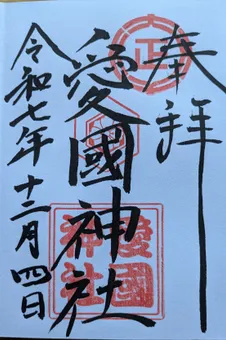 奉拝
正
愛國神社
愛國
神社
令和七年十二月四日